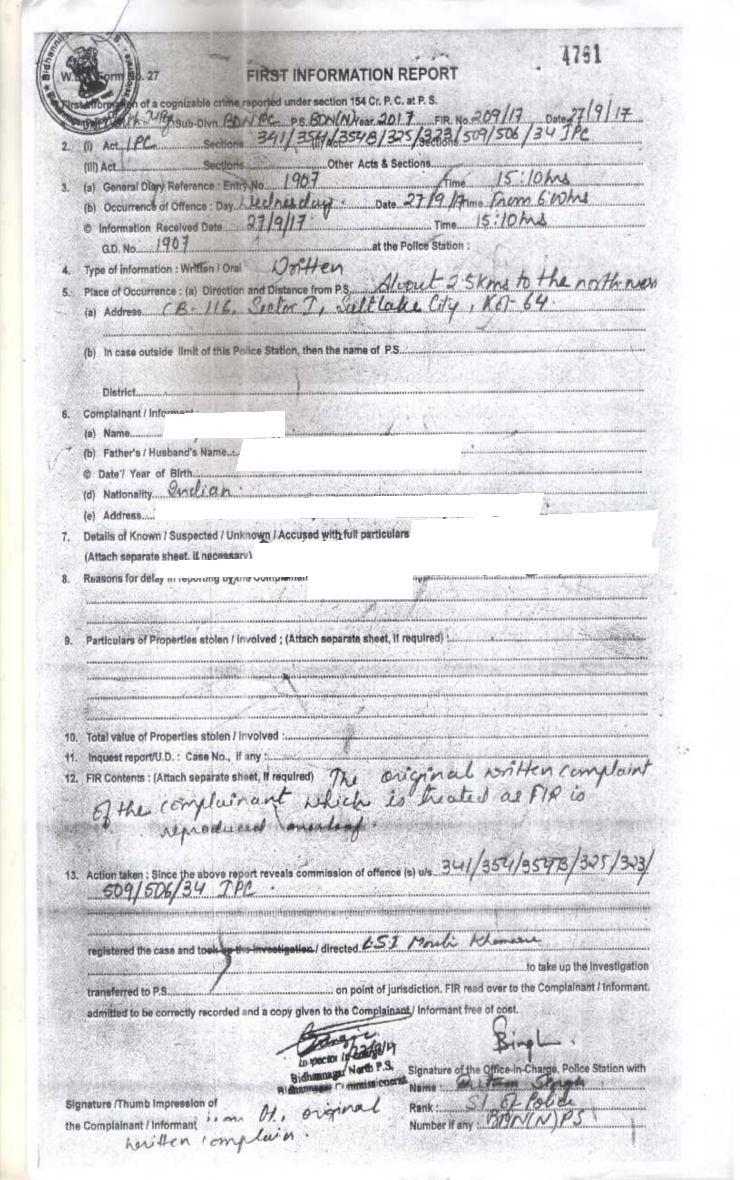 4761
W.B. Form No. 27
FIRST INFORMATION REPORT
First Information of a cognizable crime reported under section 154 Cr. P. C. at P. S.
Sub-Divn. BDN PC P.S. BDN(N) Year 2017 FIR. No. 209/17 Date 27/9/17
2. (I) Act IPC Sections 341/354/354B/325/323/509/506/34 IPC
(III) Act Sections Other Acts & Sections.
3. (a) General Diary Reference : Entry No. 1907 Time 15:10 hrs
(b) Occurrence of Offence : Day Wednesday. Date 27/9/17 Time From
© Information Received Date 27/9/17 Time 15:10 hrs
G.D. No. 1907 at the Police Station :
4. Type of information : Written / Oral Written
5. Place of Occurrence : (a) Direction and Distance from P.S. About 2.5kms to the north
(a) Address CB-116, Sector I, Saltlake City, Kol-64.
(b) In case outside limit of this Police Station, then the name of P.S.
District
6. Complainant /
(a) Name
(b) Father's / Husband's Name
© Date / Year of Birth
(d) Nationality Indian
(e) Address
7. Details of Known / Suspected / Unknown / Accused with full particulars
(Attach separate sheet, if necessary)
8. Reasons for delay in reporting by the
9. Particulars of Properties stolen / involved ; (Attach separate sheet, if required) :
10. Total value of Properties stolen / Involved :
11. Inquest report/U.D. : Case No., if any :
12. FIR Contents : (Attach separate sheet, if required) The original written complaint
of the complainant which is treated as FIR is
reproduced overleaf.
13. Action taken : Since the above report reveals commission of offence (s) u/s 341/354/354B/325/323/
509/506/34 IPC.
registered the case and took up the investigation / directed LSI
to take up the Investigation
transferred to P.S. on point of jurisdiction. FIR read over to the Complainant / Informant.
admitted to be correctly recorded and a copy given to the Complainant / Informant free of cost.
Inspector in charge
Bidhannagar North P.S.
Bidhannagar Commissionerate
Signature of the Officer-in-Charge, Police Station with
Name : Singh
Rank : SI of Police
Number if any : BDN(N)PS
Signature /Thumb Impression of
the Complainant / Informant original
written complain.